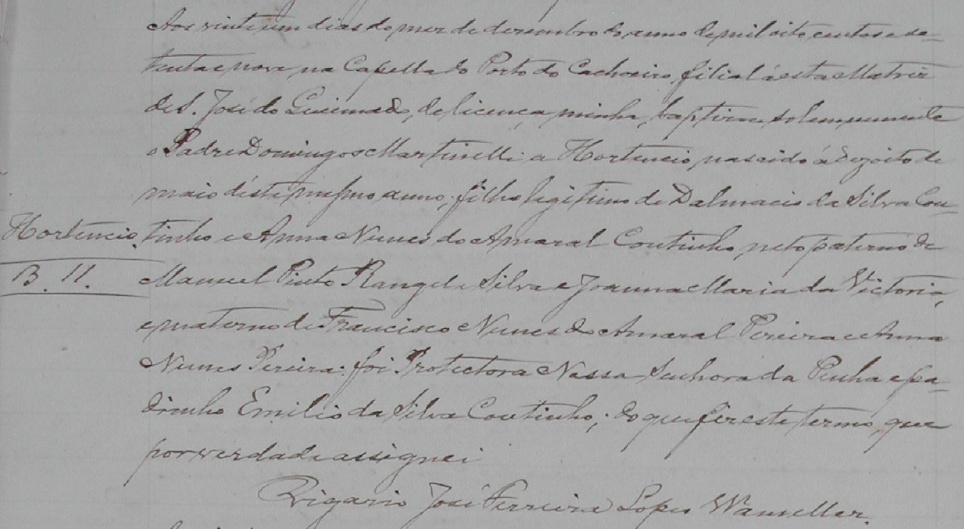 Aos vinte um dias do mez de dezembro do anno de mil oito centos e se-
tenta e nove, na Capella do Porto do Cachoeiro, filial á esta Matriz
de S. José do Queimado, de licença minha, baptizou solemnemente
o Padre Domingos Martinelli a Hortencio, nascido á dezoito de
maio d'este mesmo anno, filho legitimo de Dalmacio da Silva Cou-
Hortencio. tinho e Anna Nunes do Amaral Coutinho, neto paterno de
B. 11. Manuel Pinto Rangel e Silva e Joanna Maria da Victoria,
e materno de Francisco Nunes do Amaral Pereira e Anna
Nunes Pereira: foi Protectora Nossa Senhora da Penha e pa-
drinho Emilio da Silva Coutinho; do que fiz este termo, que
por verdade assignei
Vigario José Ferreira Lopes Wanseller.